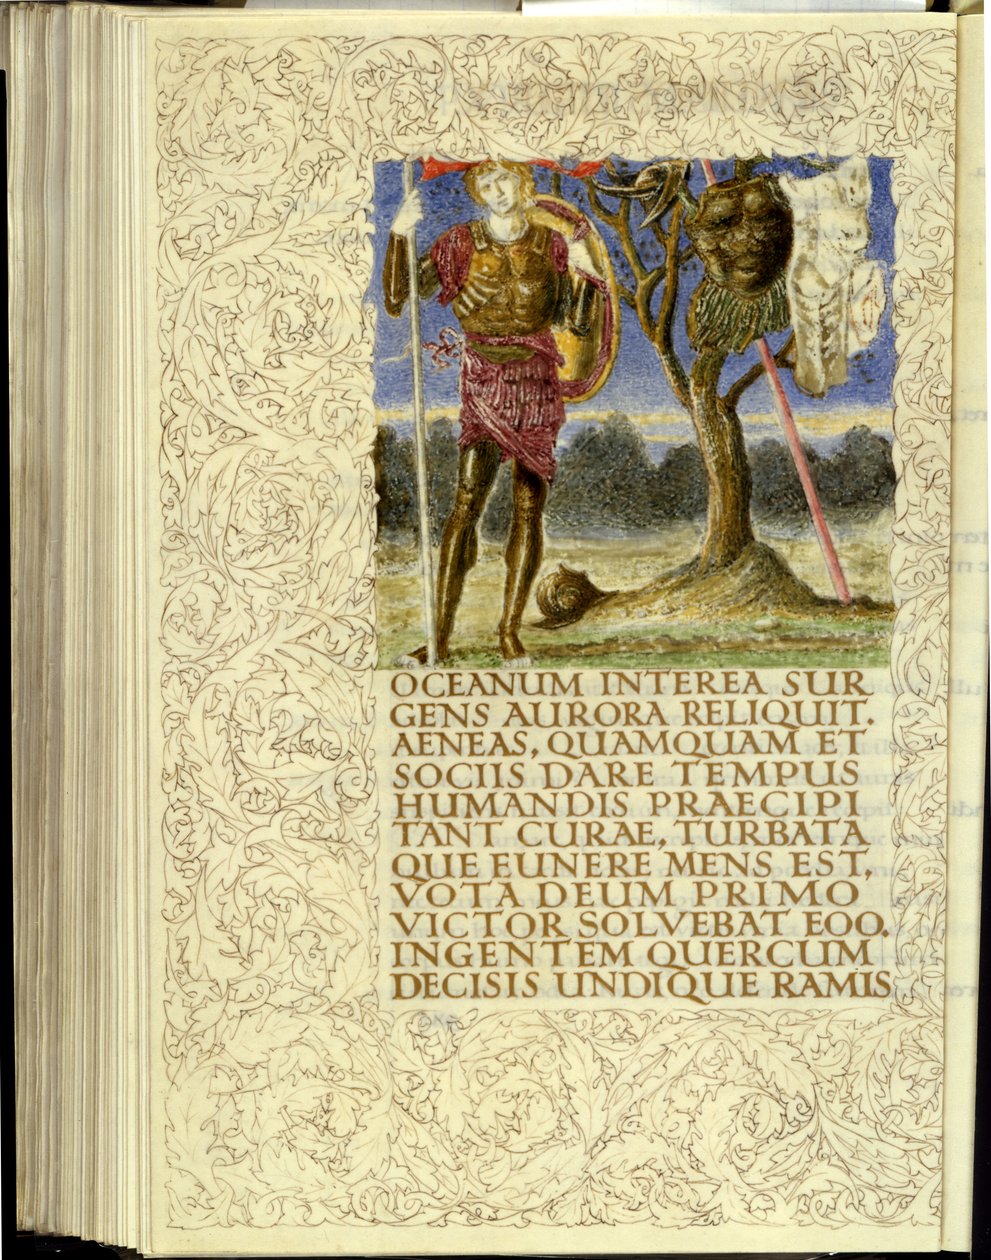 OCEANUM INTEREA SUR
GENS AURORA RELIQUIT.
AENEAS, QUAMQUAM ET
SOCIIS DARE TEMPUS
HUMANDIS PRAECIPI
TANT CURAE, TURBATA
QUE FUNERE MENS EST,
VOTA DEUM PRIMO
VICTOR SOLVEBAT EOO.
INGENTEM QUERCUM
DECISIS UNDIQUE RAMIS